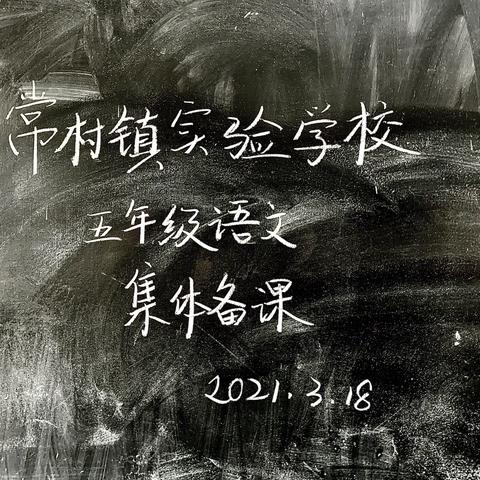 常村镇实验学校
五年级语文
集体备课
2021.3.18